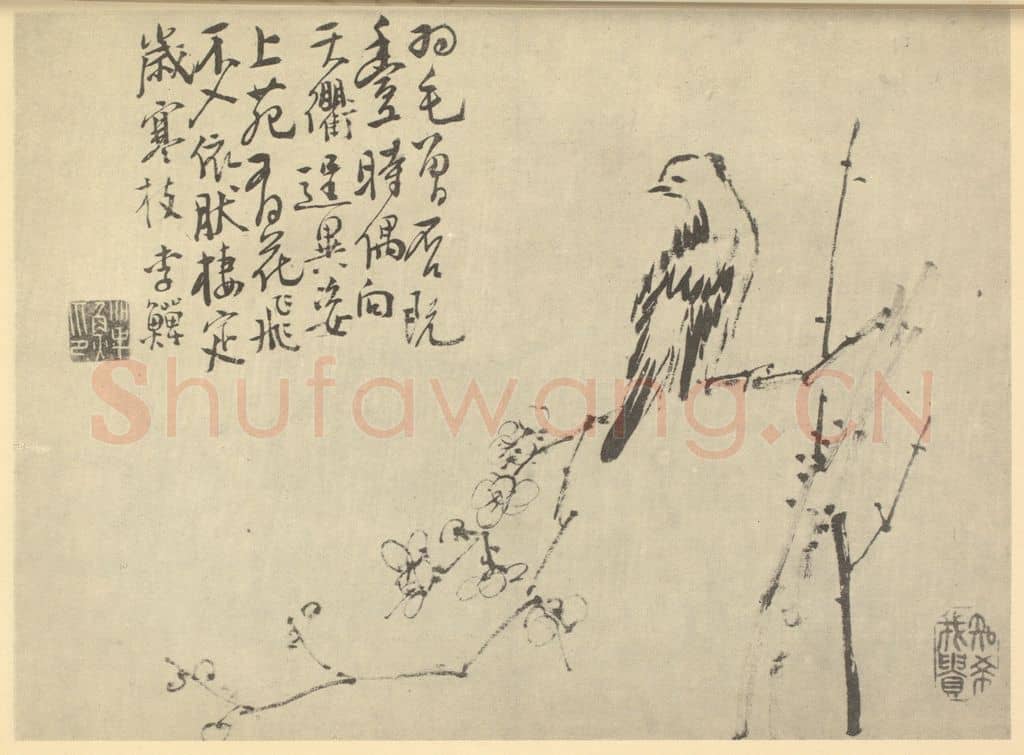 羽毛曾否既
豐時偶向
天衢逞異姿
上苑花飛
不入依肰棲定
歲寒枝 李鱓
Shufawang.CN
知希
我貴